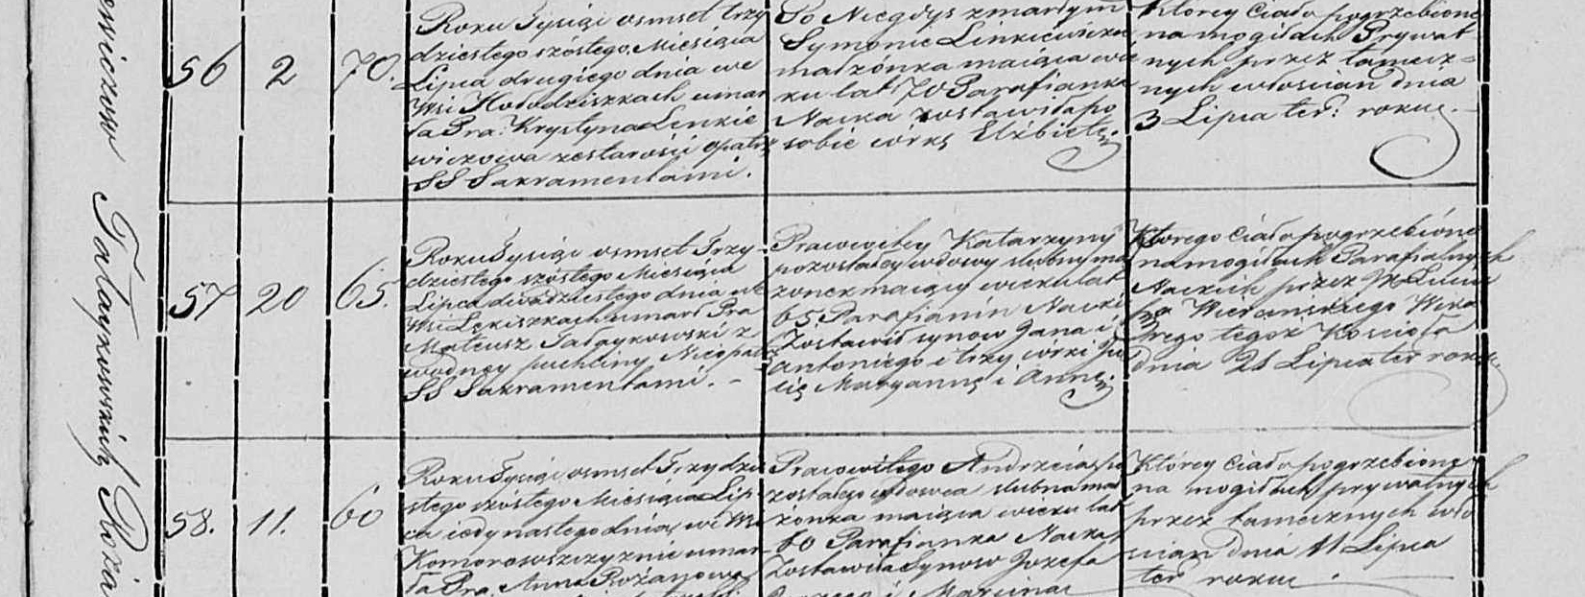 56
2
70.
Roku Tysiąc osmset trzy
dziestego szóstego, Miesiąca
Lipca drugiego dnia we
Wsi Hołodziszkach umar
ła Pra: Krystyna Linkie
wiczowa ze starości opatrz
SS Sakramentami.
Po Niegdyś zmarłym
Symonie Linkiewiczu
małżonka maiąca wie
ku lat 70 Parafianka
Nacka zostawiła po
sobie córkę Elżbietę.
Którey ciało pogrzebione
na mogiłach Prywat
nych przez tamecz-
nych włoscian dnia
3 Lipca ter: roku.
57
20
65.
Roku Tysiąc osmset Trzy-
dziestego szóstego Miesiąca
Lipca dwódziestego dnia we
Wsi Lękiszkach umarł Pra
Mateusz Tałaykowski z
wodney puchliny Nieopatrz
SS Sakramentami. -
Pracowitey Katarzyny
pozostałey wdowy slubny mał
żonek maiący wieku lat
65 Parafianin Nacki
Zostawił synów Jana i
Antoniego i trzy córki
Maryannę i Annę.
Ktorego ciało pogrzebione
na mogiłach Parafialnych
Nackich przez
tegoż Koscioła
dnia 21 Lipca ter roku.
58.
11.
60
Roku Tysiąc osmset Trzydzie
stego szóstego Miesiąca Lip-
ca iedynastego dnia we Wsi
Komorowszczyznie umar
ła Pra. Anna Rożanowa
Pracowitego Andrzeia po
zostałego wdowca slubna mał
żonka maiąca wieku lat
60 Parafianka Nacka
Zostawiła Synow Jozefa
i Marcina
Którey ciało pogrzebione
na mogiłach prywatnych
przez tamecznych wło
scian dnia 11 Lipca
ter roku.
Tałaykowskich